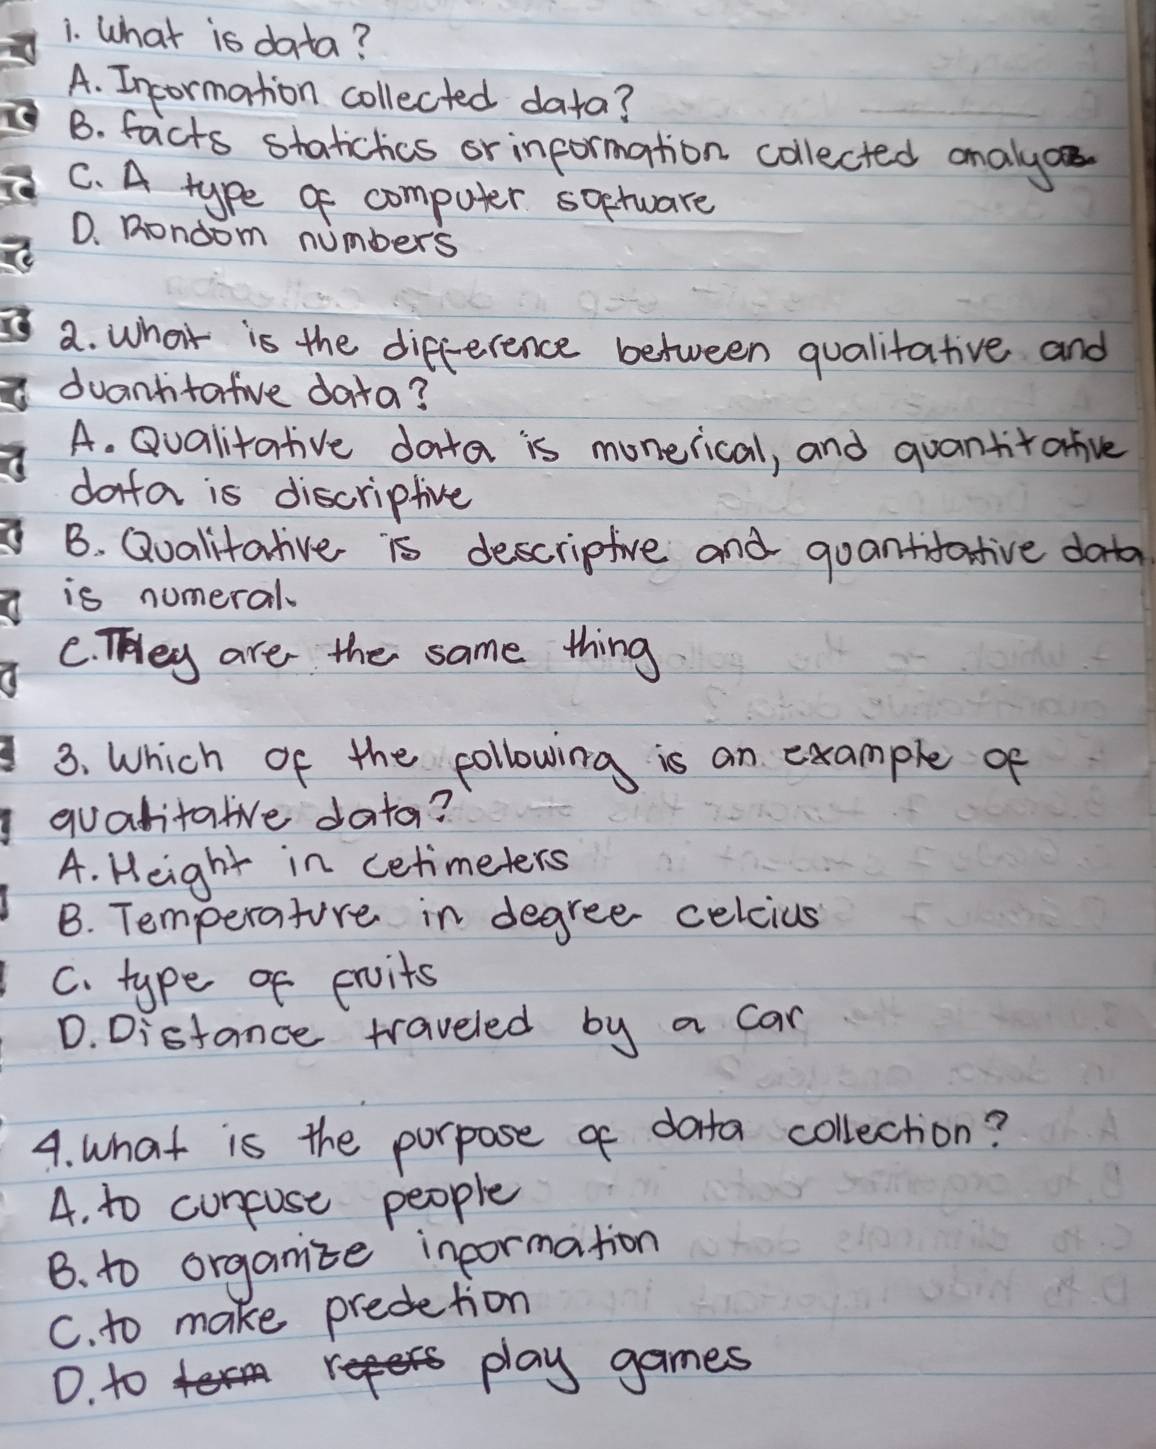 1. What is data?
A. Information collected data?
B. facts statictics or information collected
C. A type of computer software
D. Rondom numbers
2. What is the difference between qualitative and
duantitative data?
A. Qualitative data is munerical, and quantitative
data is discriptive
B. Qualitative is descriptive and quantitative data
is numeral.
C. They are the same thing
3. Which of the following is an example of
qualitative data?
A. Height in cetimeters
B. Temperature in degree celcius
C. type of fruits
D. Distance traveled by a car
4. What is the purpose of data collection?
A. to cunfuse people
B. to organize information
C. to make predetion
D. to term refers play games